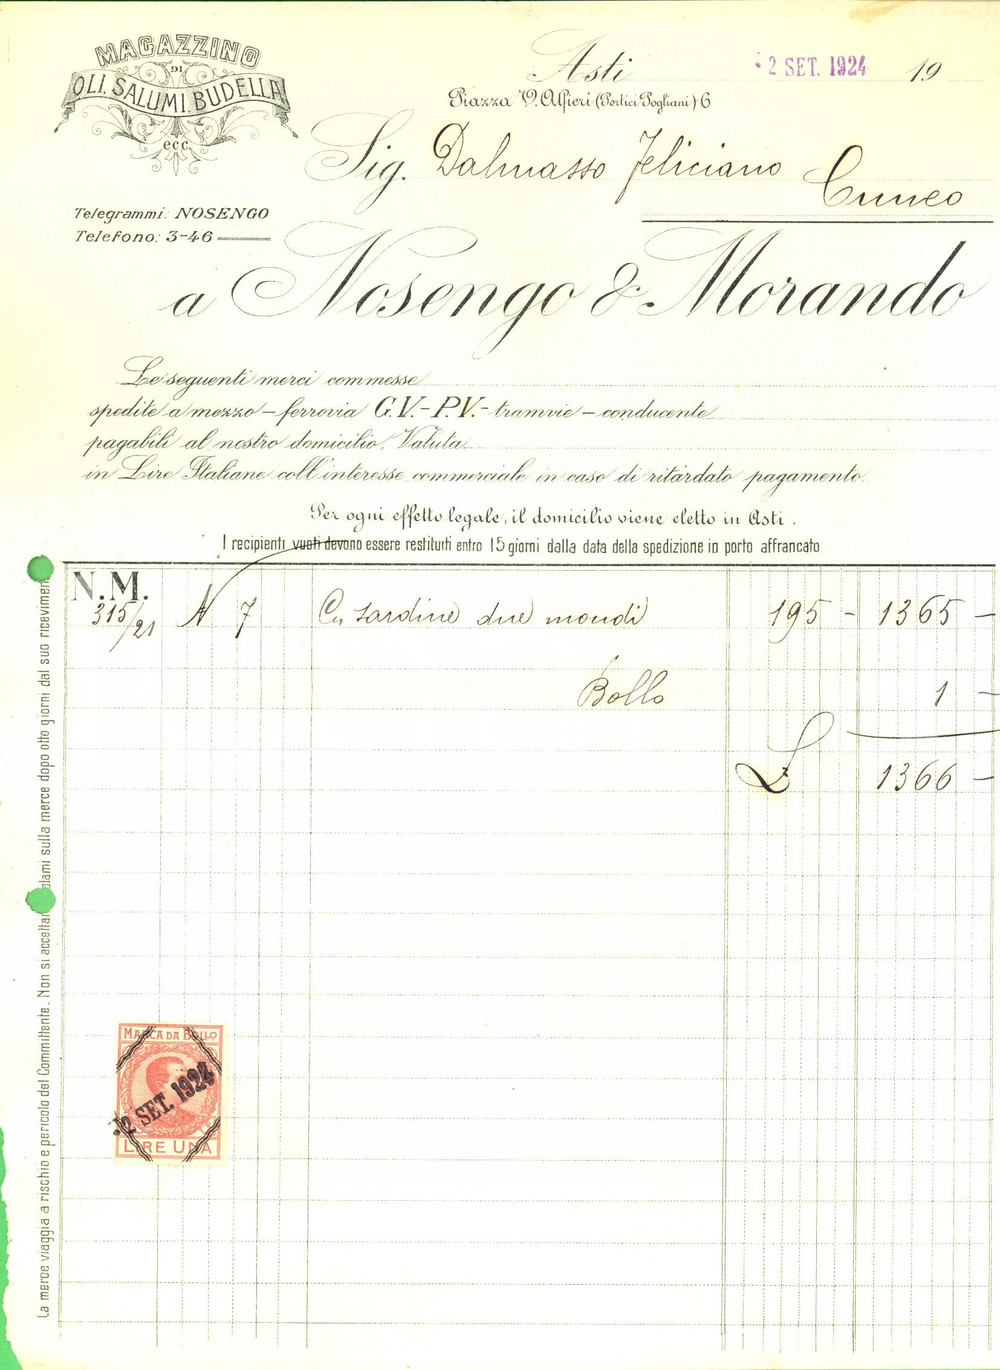 MAGAZZINO
DI
OLI. SALUMI. BUDELLA
ecc.
Telegrammi: NOSENGO
Telefono: 3-46
Asti 2 SET. 1924 19
Piazza V. Alfieri (Portici Pogliani) 6
Sig. Dalmasso Feliciano
Cuneo
a Nosengo & Morando
Le seguenti merci commesse
spedite a mezzo - ferrovia G.V. - P.V. - tramvie - conducente
pagabili al nostro domicilio, Valuta
in Lire Italiane coll'interesse commerciale in caso di ritardato pagamento.
Per ogni effetto legale, il domicilio viene eletto in Asti.
I recipienti vuoti devono essere restituiti entro 15 giorni dalla data della spedizione in porto affrancato
N. M.
315/21 N 7 Cn sardine due mondi 195 - 1365 -
Bollo 1 -
£ 1366 -
MARCA DA BOLLO
12 SET. 1924
LIRE UNA
La merce viaggia a rischio e pericolo del Committente. Non si accettano reclami sulla merce dopo otto giorni dal suo ricevimento